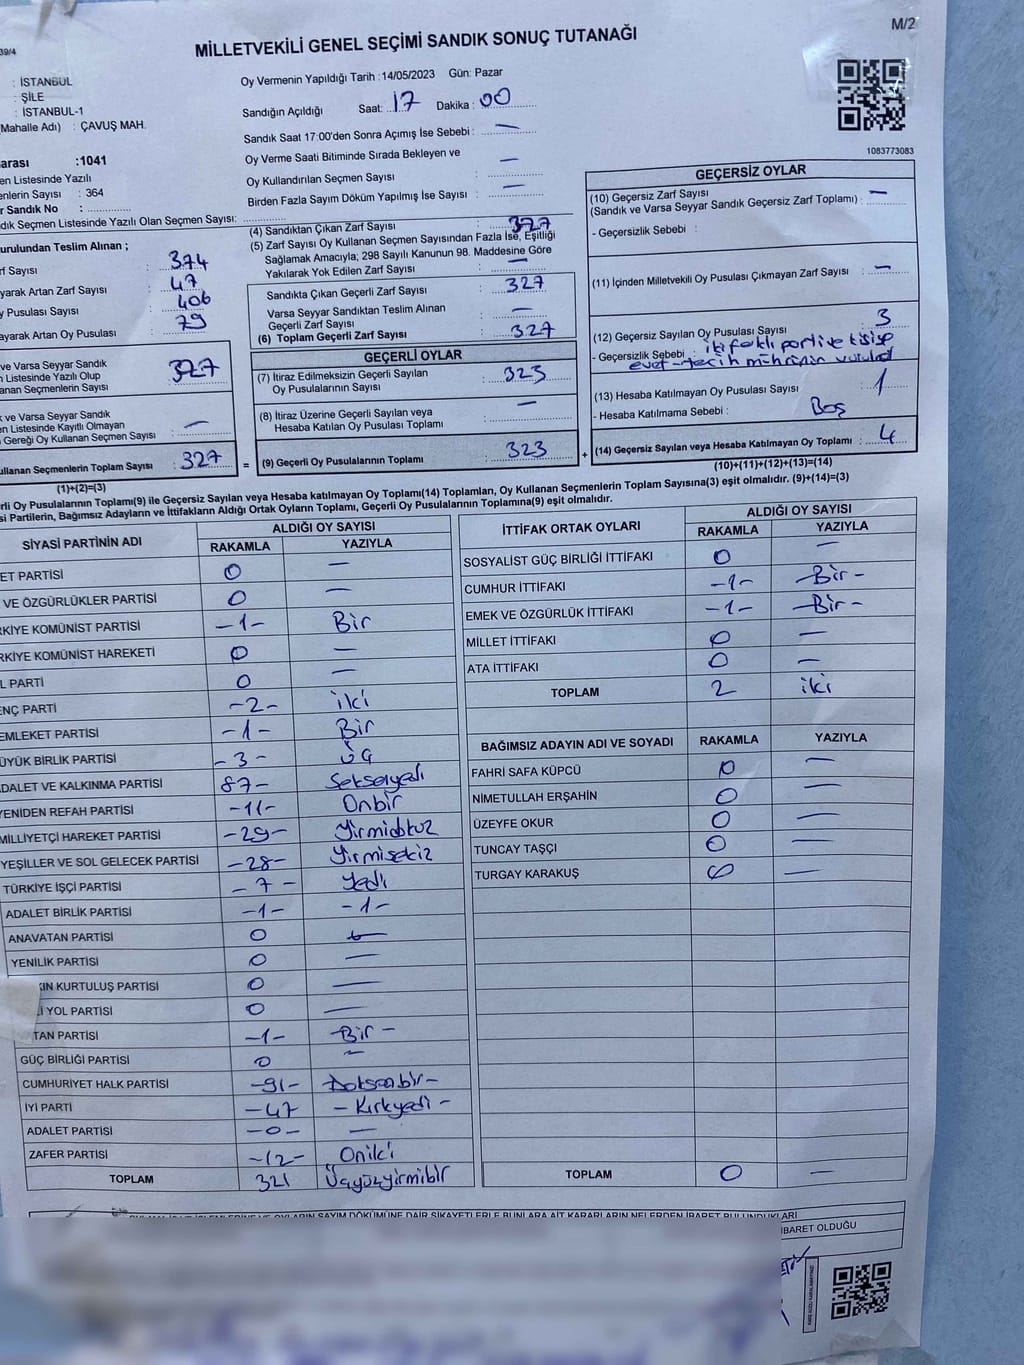 39/4
MİLLETVEKİLİ GENEL SEÇİMİ SANDIK SONUÇ TUTANAĞI
M/2
: İSTANBUL
: ŞİLE
: İSTANBUL-1
(Mahalle Adı) : ÇAVUŞ MAH.
Oy Vermenin Yapıldığı Tarih : 14/05/2023 Gün: Pazar
Sandığın Açıldığı Saat: 17 Dakika : 00
Sandık Saat 17:00'den Sonra Açımış İse Sebebi : —
Oy Verme Saati Bitiminde Sırada Bekleyen ve
Oy Kullandırılan Seçmen Sayısı : —
Birden Fazla Sayım Döküm Yapılmış İse Sayısı : —
1083773083
arası :1041
en Listesinde Yazılı
enlerin Sayısı : 364
r Sandık No :
dık Seçmen Listesinde Yazılı Olan Seçmen Sayısı:
urulundan Teslim Alınan ;
rf Sayısı : 374
yarak Artan Zarf Sayısı : 47
y Pusulası Sayısı : 406
ayarak Artan Oy Pusulası : 79
ve Varsa Seyyar Sandık
n Listesinde Yazılı Olup
anan Seçmenlerin Sayısı : 327
k ve Varsa Seyyar Sandık
en Listesinde Kayıtlı Olmayan
Gereği Oy Kullanan Seçmen Sayısı : —
ullanan Seçmenlerin Toplam Sayısı : 327
(1)+(2)=(3)
(4) Sandıktan Çıkan Zarf Sayısı : 327
(5) Zarf Sayısı Oy Kullanan Seçmen Sayısından Fazla İse, Eşitliği
Sağlamak Amacıyla; 298 Sayılı Kanunun 98. Maddesine Göre
Yakılarak Yok Edilen Zarf Sayısı : —
Sandıkta Çıkan Geçerli Zarf Sayısı : 327
Varsa Seyyar Sandıktan Teslim Alınan
Geçerli Zarf Sayısı : —
(6) Toplam Geçerli Zarf Sayısı : 327
GEÇERLİ OYLAR
(7) İtiraz Edilmeksizin Geçerli Sayılan
Oy Pusulalarının Sayısı : 323
(8) İtiraz Üzerine Geçerli Sayılan veya
Hesaba Katılan Oy Pusulası Toplamı : —
= (9) Geçerli Oy Pusulalarının Toplamı : 323 +
GEÇERSİZ OYLAR
(10) Geçersiz Zarf Sayısı
(Sandık ve Varsa Seyyar Sandık Geçersiz Zarf Toplamı) : —
- Geçersizlik Sebebi :
(11) İçinden Milletvekili Oy Pusulası Çıkmayan Zarf Sayısı : —
(12) Geçersiz Sayılan Oy Pusulası Sayısı : 3
- Geçersizlik Sebebi : iki farklı parti ve kişiye
evet-tercih mührünün vurulması
(13) Hesaba Katılmayan Oy Pusulası Sayısı : 1
- Hesaba Katılmama Sebebi : Boş
(14) Geçersiz Sayılan veya Hesaba Katılmayan Oy Toplamı : 4
(10)+(11)+(12)+(13)=(14)
rli Oy Pusulalarının Toplamı(9) ile Geçersiz Sayılan veya Hesaba katılmayan Oy Toplamı(14) Toplamları, Oy Kullanan Seçmenlerin Toplam Sayısına(3) eşit olmalıdır. (9)+(14)=(3)
si Partilerin, Bağımsız Adayların ve İttifakların Aldığı Ortak Oyların Toplamı, Geçerli Oy Pusulalarının Toplamına(9) eşit olmalıdır.
SİYASİ PARTİNİN ADI ALDIĞI OY SAYISI
RAKAMLA YAZIYLA
ET PARTİSİ 0 —
VE ÖZGÜRLÜKLER PARTİSİ 0 —
RKİYE KOMÜNİST PARTİSİ -1- Bir
RKİYE KOMÜNİST HAREKETİ 0 —
L PARTİ 0 —
ENÇ PARTİ -2- iki
EMLEKET PARTİSİ -1- Bir
ÜYÜK BİRLİK PARTİSİ -3- Üç
DALET VE KALKINMA PARTİSİ 87- Seksenyedi
YENİDEN REFAH PARTİSİ -11- Onbir
MİLLİYETÇİ HAREKET PARTİSİ -29- Yirmidokuz
YEŞİLLER VE SOL GELECEK PARTİSİ -28- Yirmisekiz
TÜRKİYE İŞÇİ PARTİSİ -7- Yedi
ADALET BİRLİK PARTİSİ -1- -1-
ANAVATAN PARTİSİ 0 —
YENİLİK PARTİSİ 0 —
KIN KURTULUŞ PARTİSİ 0 —
Lİ YOL PARTİSİ 0 —
TAN PARTİSİ -1- Bir -
GÜÇ BİRLİĞİ PARTİSİ 0 —
CUMHURİYET HALK PARTİSİ -91- Doksanbir-
İYİ PARTİ -47 - Kırkyedi -
ADALET PARTİSİ -0- —
ZAFER PARTİSİ -12- Oniki
TOPLAM 321 Üçyüzyirmibir
İTTİFAK ORTAK OYLARI ALDIĞI OY SAYISI
RAKAMLA YAZIYLA
SOSYALİST GÜÇ BİRLİĞİ İTTİFAKI 0 —
CUMHUR İTTİFAKI -1- -Bir-
EMEK VE ÖZGÜRLÜK İTTİFAKI -1- -Bir-
MİLLET İTTİFAKI 0 —
ATA İTTİFAKI 0 —
TOPLAM 2 iki
BAĞIMSIZ ADAYIN ADI VE SOYADI RAKAMLA YAZIYLA
FAHRİ SAFA KÜPCÜ 0 —
NİMETULLAH ERŞAHİN 0 —
ÜZEYFE OKUR 0 —
TUNCAY TAŞÇI 0 —
TURGAY KARAKUŞ 0 —
TOPLAM 0 —
İBARET OLDUĞU